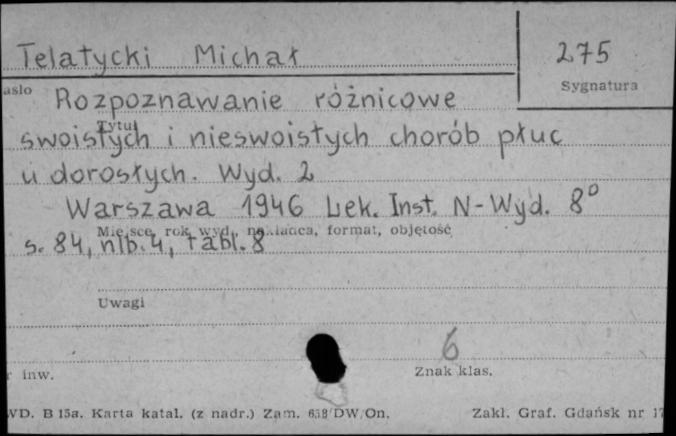 Telatycki Michał 275
asło Sygnatura
Rozpoznawanie różnicowe
Tytuł
swoistych i nieswoistych chorób płuc
u dorosłych. Wyd. 2
Warszawa 1946 Lek. Inst. N-Wyd. 8°
Miejsce, rok wyd., nakładca, format, objętość
s. 84, nlb. 4, tabl. 8
Uwagi
6
r inw. Znak klas.
WD. B 15a. Karta katal. (z nadr.) Zam. 658/DW/On. Zakl. Graf. Gdańsk nr 17